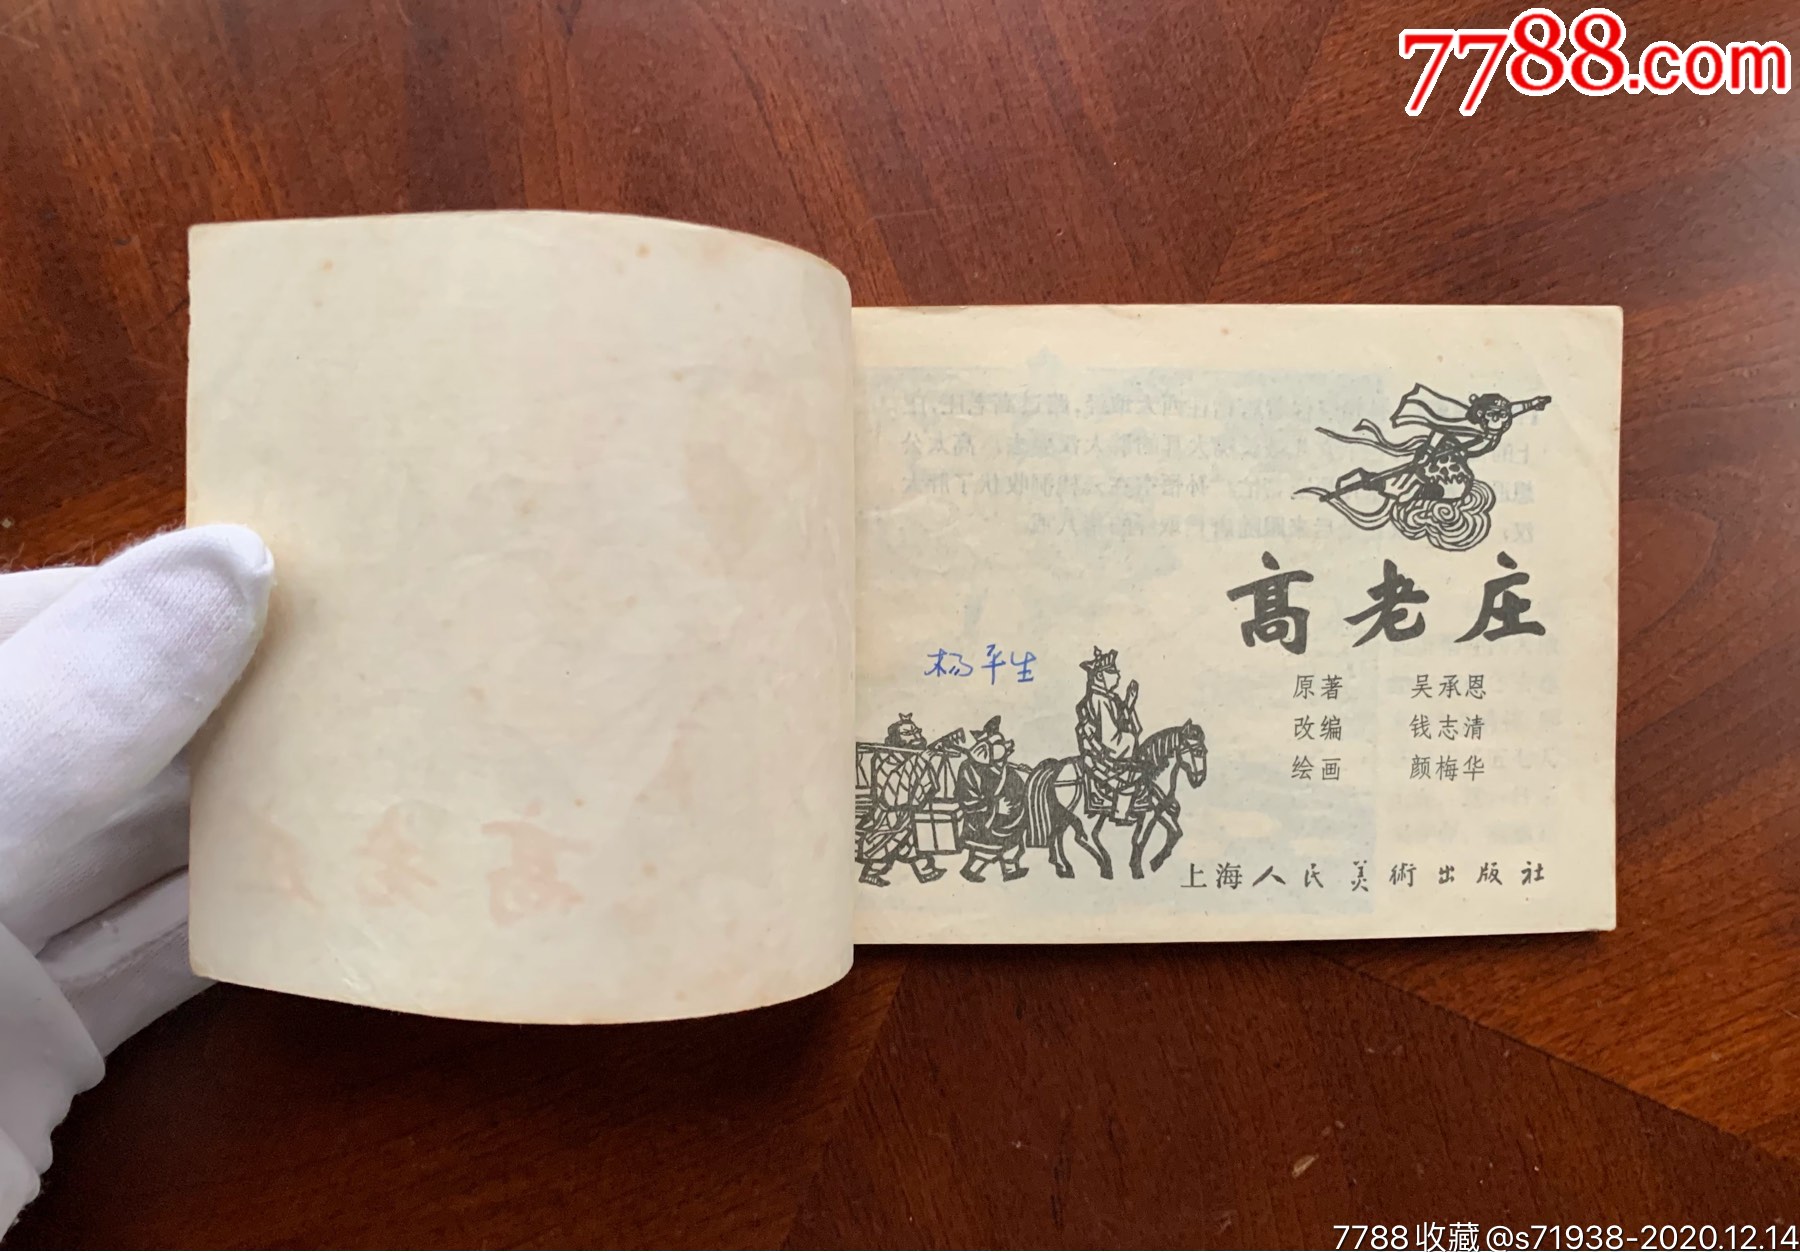 7788.com
高老庄
杨平生
原著 吴承恩
改编 钱志清
绘画 颜梅华
上海人民美術出版社
高老庄
7788收藏@s71938-2020.12.14